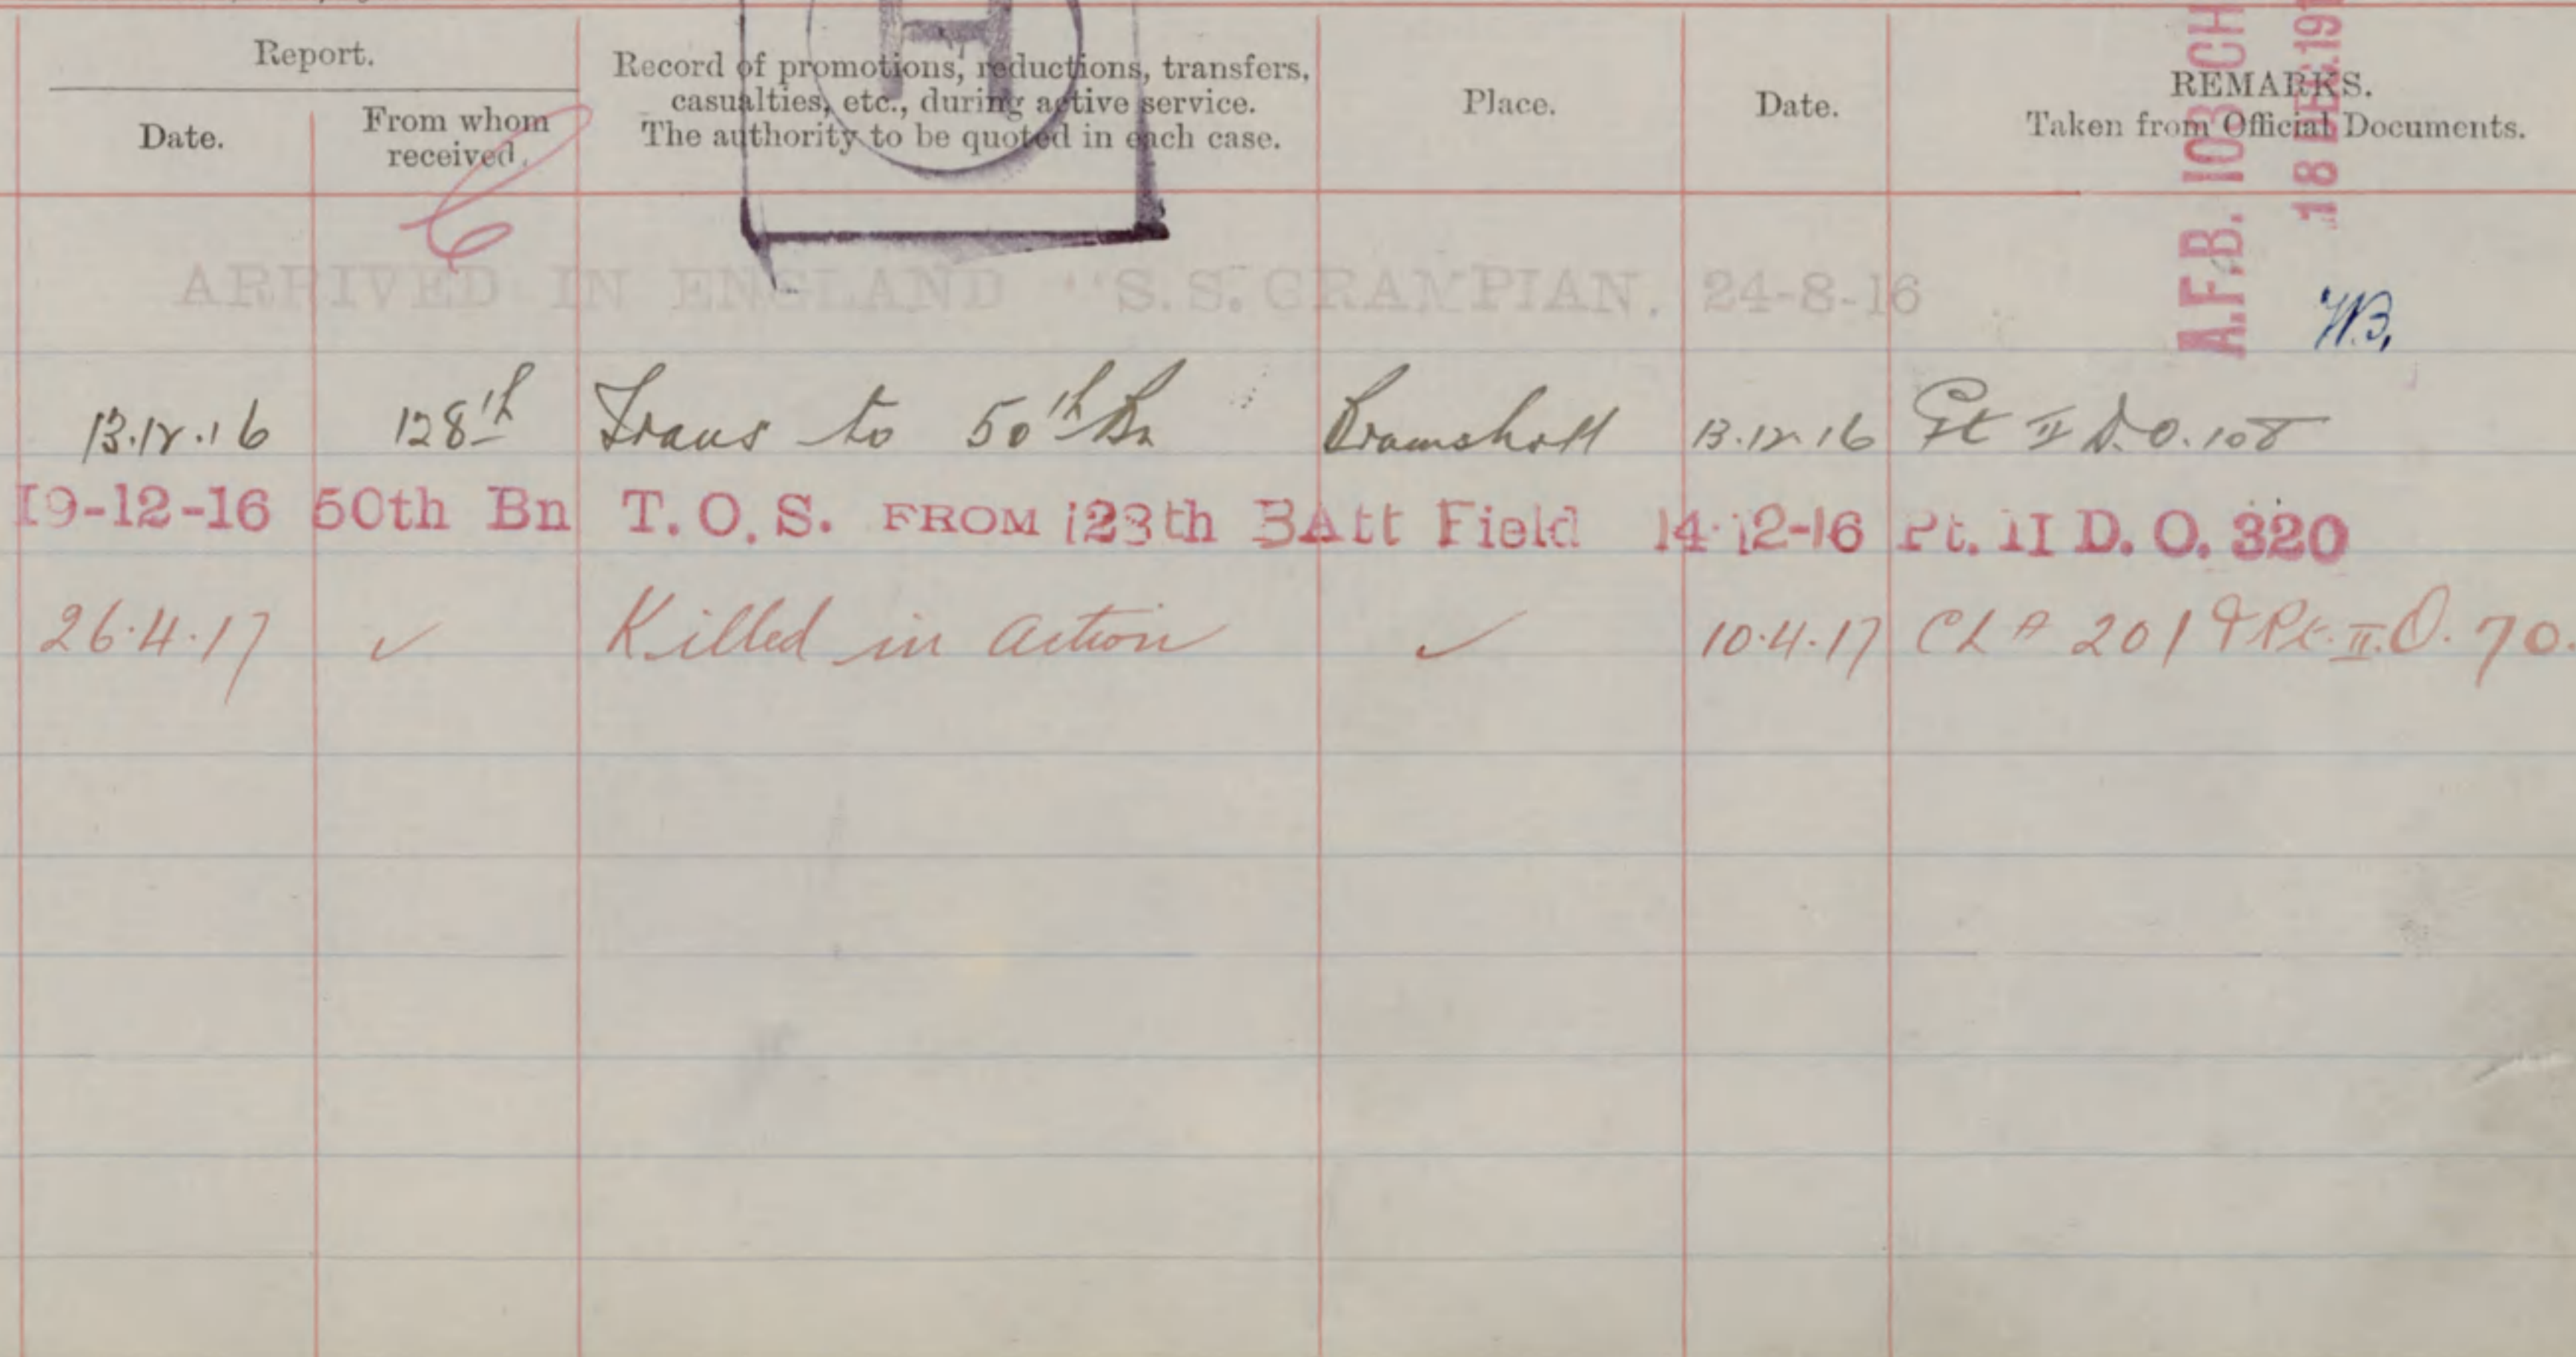 Report.
Date.
From whom
received.
Record of promotions, reductions, transfers,
casualties, etc., during active service.
The authority to be quoted in each case.
Place.
Date.
REMARKS.
Taken from Official Documents.
H
A.F.B. 103 CH
18 DEC 191
ARRIVED IN ENGLAND "S.S. GRAMPIAN. 24-8-16
13.12.16 128th Trans to 50th Bn Bramshott 13.12.16 Pt II D.O. 108
19-12-16 50th Bn T.O.S. FROM 128th BAtt Field 14-12-16 Pt. II D. O. 320
26.4.17 ✓ Killed in Action ✓ 10.4.17 CL A 201 & Pt. II.O. 70.